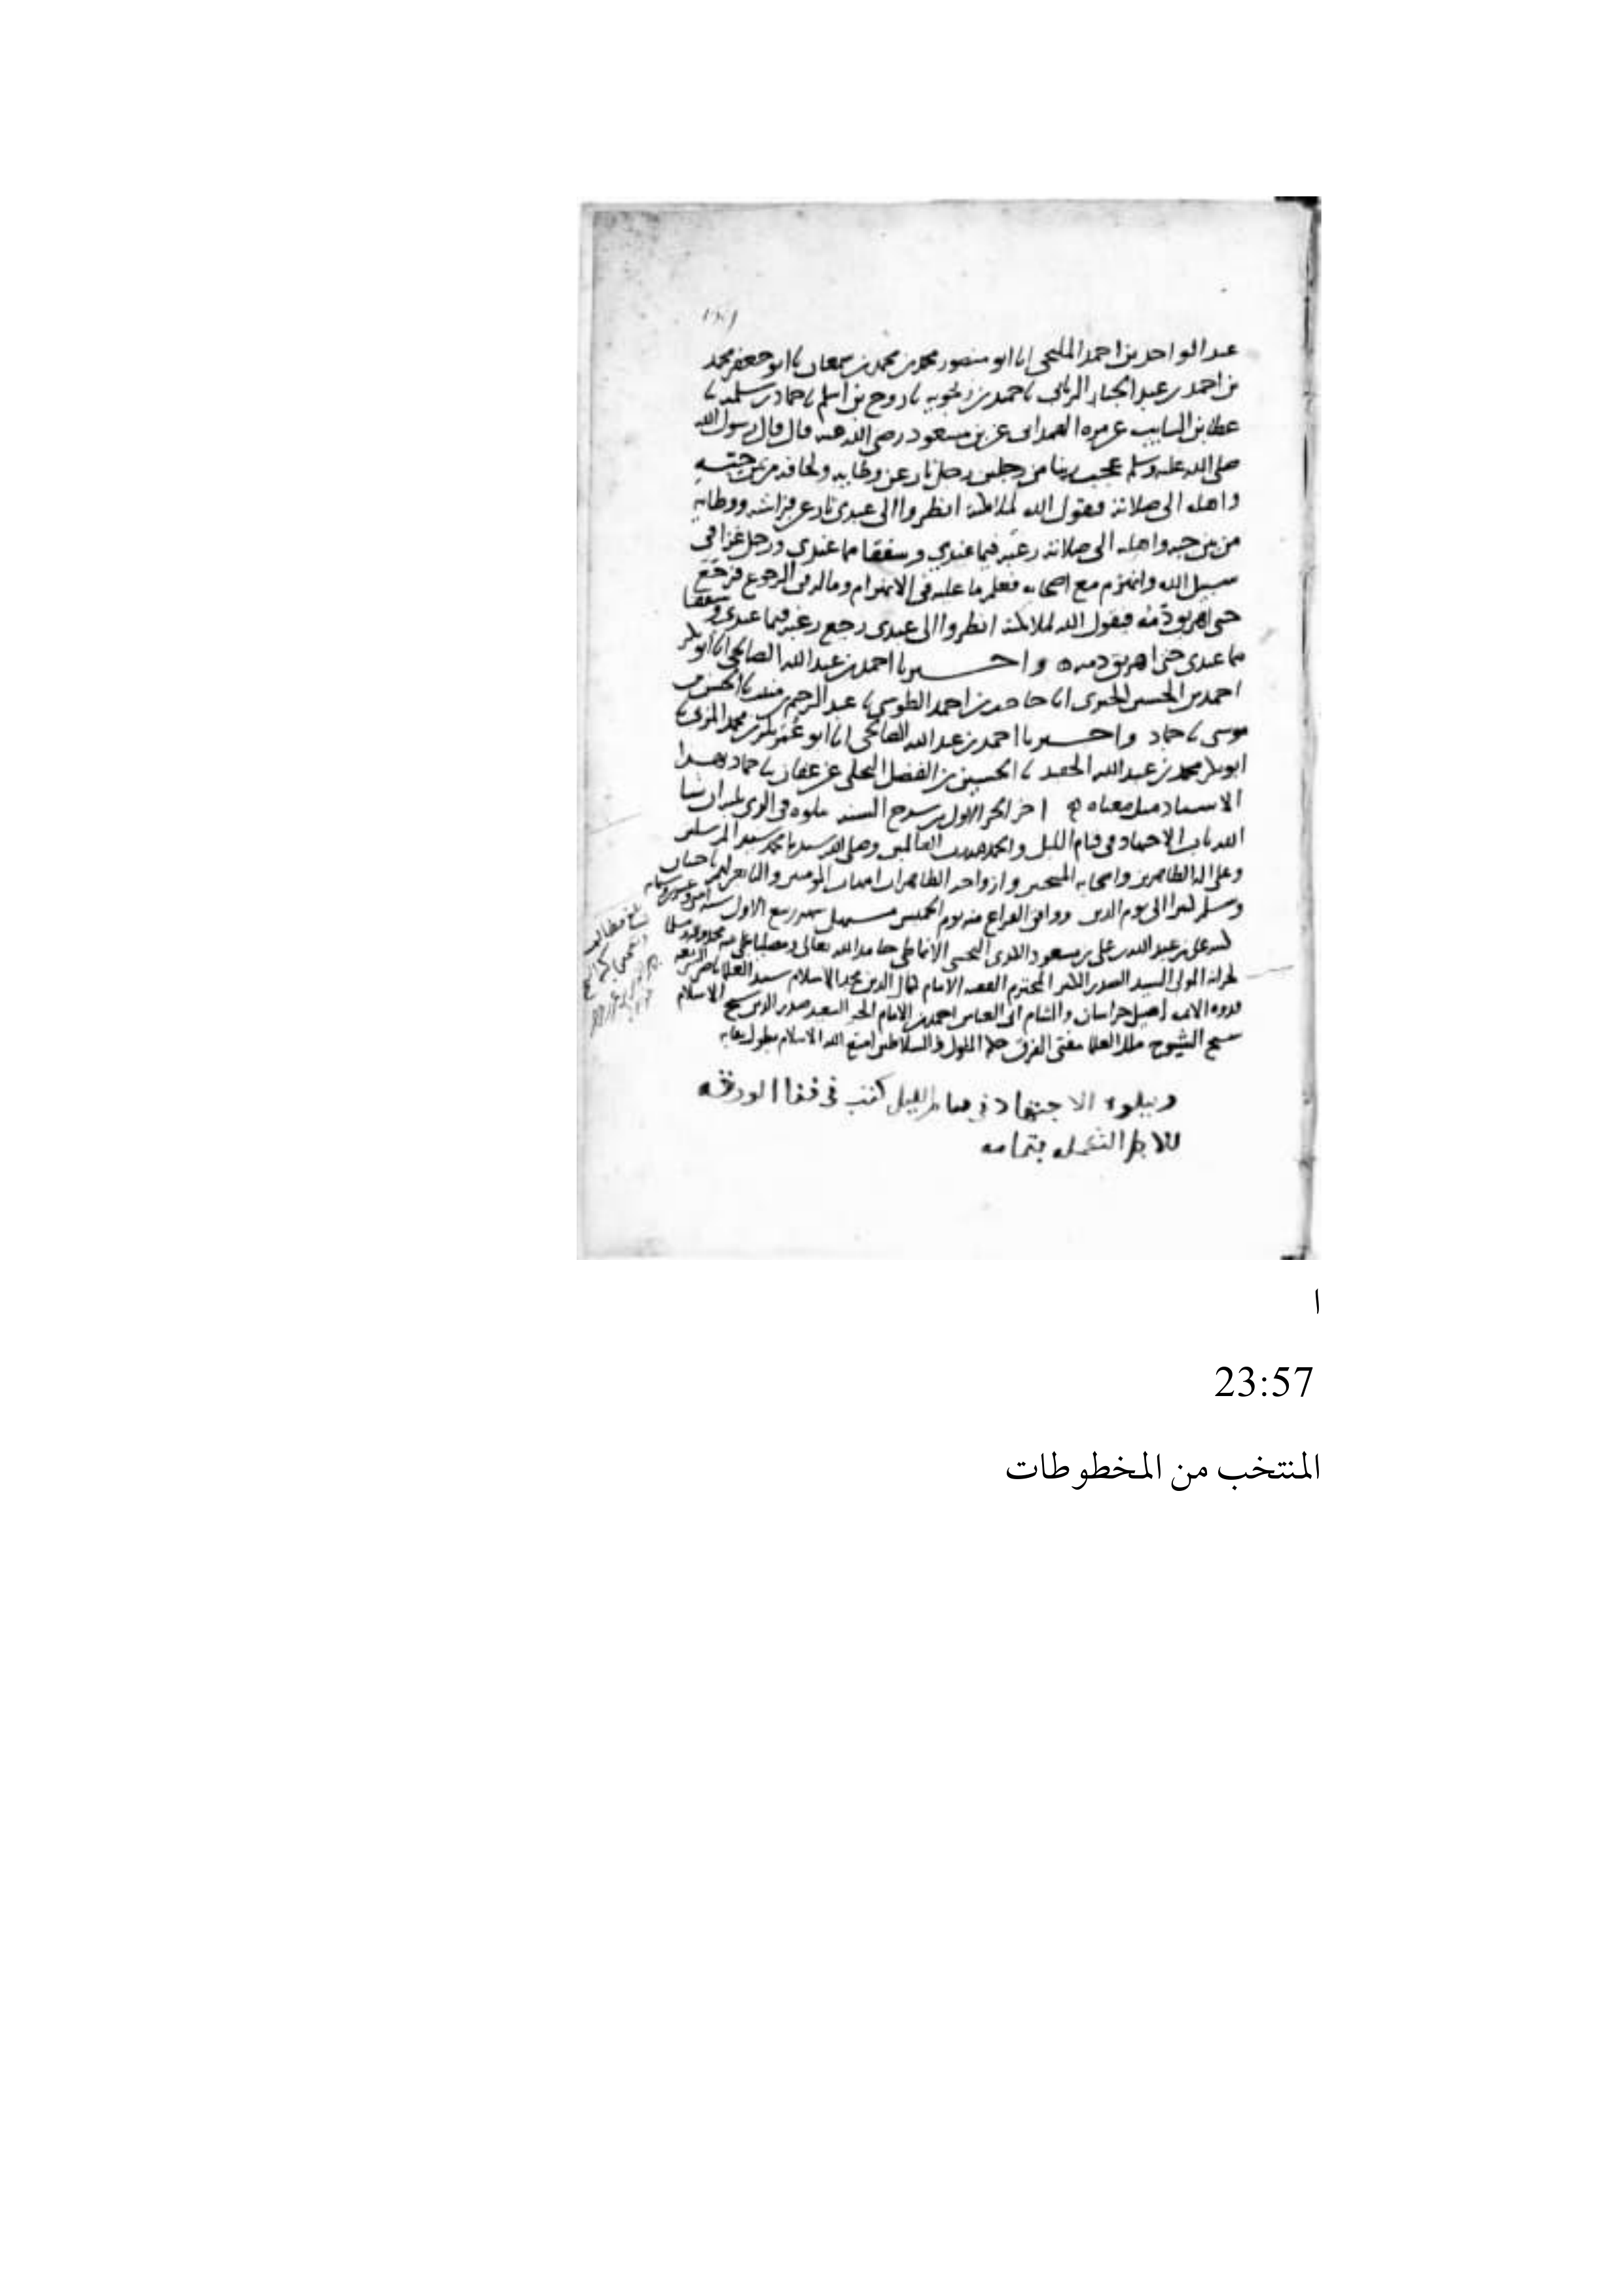 عبد الواحد بن احمد المليحى انا ابو منصور محمد بن محمد بن سمعان نا ابو جعفر محمد
بن احمد بن عبد الجبار الريانى نا حميد بن زنجويه نا روح بن اسلم نا حماد بن سلمه نا
عطا بن السايب عن مره الهمدانى عن بن مسعود رضى الله عنه قال قال رسول الله
صلى الله عليه وسلم عجب ربنا من رجلين رجل ثار عن وطايه ولحافه من بين حبه
واهله الى صلاته فيقول الله لملائكته انظروا الى عبدى ثار عن فراشه ووطايه
من بين حبه واهله الى صلاته رغبه فيما عندي وشفقا مما عندي ورجل غزا فى
سبيل الله وانهزم مع اصحابه فعلم ما عليه فى الانهزام وماله فى الرجوع فرجع
حتى اهريق دمه فيقول الله لملائكته انظروا الى عبدى رجع رغبه فيما عندى وشفقا
مما عندى حتى اهريق دمه ه واخبرنا احمد بن عبد الله الصالحى انا ابو بكر
احمد بن الحسن الحيرى انا حاجب بن احمد الطوسي نا عبد الرحيم بن منيب نا الحسن بن
موسى نا حماد واخبرنا احمد بن عبد الله الصالحى انا ابو عمر بكر بن محمد المزنى نا
ابو بكر محمد بن عبد الله الحفيد نا الحسين بن الفضل البجلى عن عفان نا حماد بهذا
الاسناد مثل معناه ه اخر الجز الاول من شرح السنه يتلوه فى الذى يليه ان شا
الله باب الاجتهاد فى قيام الليل والحمد لله رب العالمين وصلى الله سيدنا محمد سيد المرسلين
وعلى اله الطاهرين واصحابه المنتجبين وازواجه الطاهرات امهات المومنين والتابعين لهم باحسان
وسلم كثيرا الى يوم الدين ووافق الفراغ منه يوم الخميس مستهل شهر ربيع الاول سنه
كتبه على بن عبد الله بن على بن مسعود الانماطى حامدا لله تعالى ومصليا على نبيه محمد واله ومسلما
المولى السيد الصدر الكبير المحترم الفقيه الامام كمال الدين مجد الاسلام سيد العلما ناصر الشريعه
قدوه الايمه اصيل خراسان والشام ابى العباس احمد بن الامام السعيد صدر الدين شيخ الاسلام
شيخ الشيوخ ملك العلما مفتى الفرق الملوك والسلاطين امتع الله الاسلام بطول بقايه
ويتلوه الاجتهاد في قيام الليل كتب في قفا الورقه
لاجل التكمله بتمامه
ا
23:57
المنتخب من المخطوطات